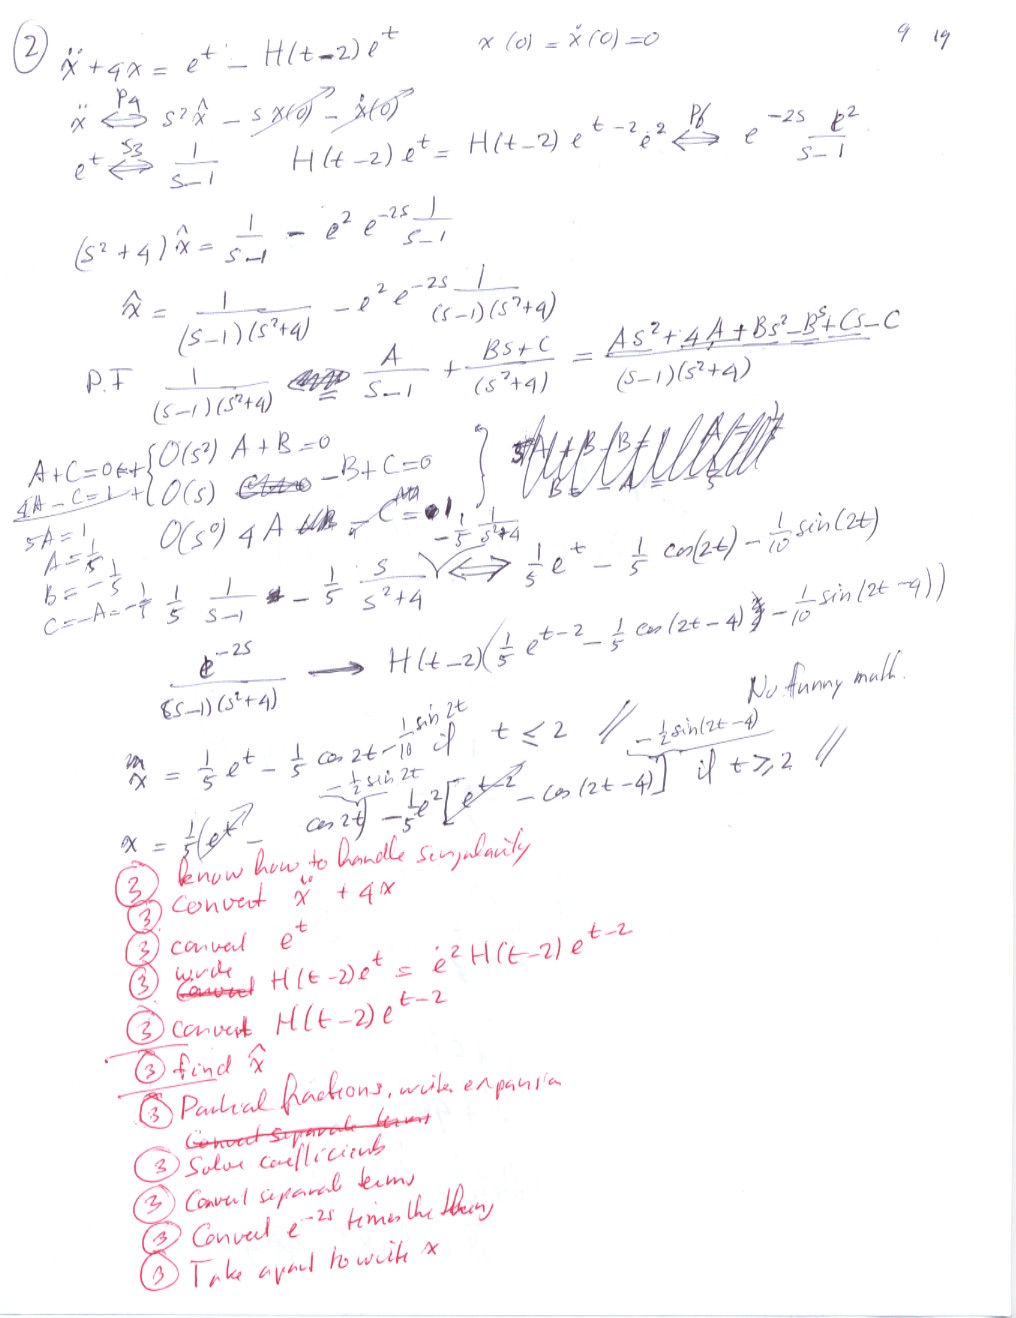 ② ẍ + 4x = e^t − H(t−2)e^t    x(0) = ẋ(0) = 0    9 19
ẍ ⟺ (P4) s²x̂ − s x(0) − ẋ(0)
e^t ⟺ (S3) 1/(s−1)    H(t−2)e^t = H(t−2)e^{t−2}e² ⟺ (P6) e^{−2s} e²/(s−1)
(s²+4)x̂ = 1/(s−1) − e² e^{−2s} 1/(s−1)
x̂ = 1/((s−1)(s²+4)) − e² e^{−2s} 1/((s−1)(s²+4))
P.F 1/((s−1)(s²+4)) = A/(s−1) + (Bs+C)/(s²+4) = (As²+4A+Bs²−Bs+Cs−C)/((s−1)(s²+4))
O(s²) A+B=0
A+C=0 ← + O(s) −B+C=0
4A−C=1 + O(s⁰) 4A − C = 1
5A=1
A=1/5
B=−1/5
C=−A=−1/5
1/5 1/(s−1) − 1/5 s/(s²+4) − 1/5 1/(s²+4) ⟺ 1/5 e^t − 1/5 cos(2t) − 1/10 sin(2t)
e^{−2s}/((s−1)(s²+4)) → H(t−2)(1/5 e^{t−2} − 1/5 cos(2t−4) − 1/10 sin(2t−4))
No funny math.
x = 1/5 e^t − 1/5 cos 2t − 1/10 sin 2t if t ≤ 2 //
x = 1/5(e^t − cos 2t − 1/2 sin 2t) − 1/5 e²[e^{t−2} − cos(2t−4) − 1/2 sin(2t−4)] if t ≥ 2 //
③ know how to handle singularity
③ convert ẍ + 4x
③ convert e^t
③ write H(t−2)e^t = e² H(t−2)e^{t−2}
③ convert H(t−2)e^{t−2}
③ find x̂
③ Partial fractions, write expansion
Convert separate terms
③ Solve coefficients
③ Convert separate terms
③ Convert e^{−2s} times the thing
③ Take apart to write x